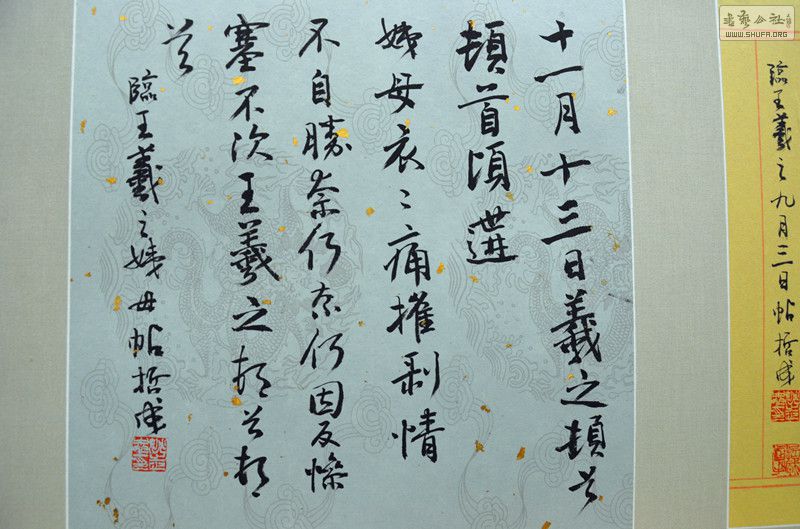 書藝公社
WWW.SHUFA.ORG
臨王羲之九月三日帖哲成
十一月十三日羲之頓首
頓首頃遘
姨母哀〻痛摧剝情
不自勝奈何奈何因反慘
塞不次王羲之頓首頓
首
臨王羲之姨母帖哲成